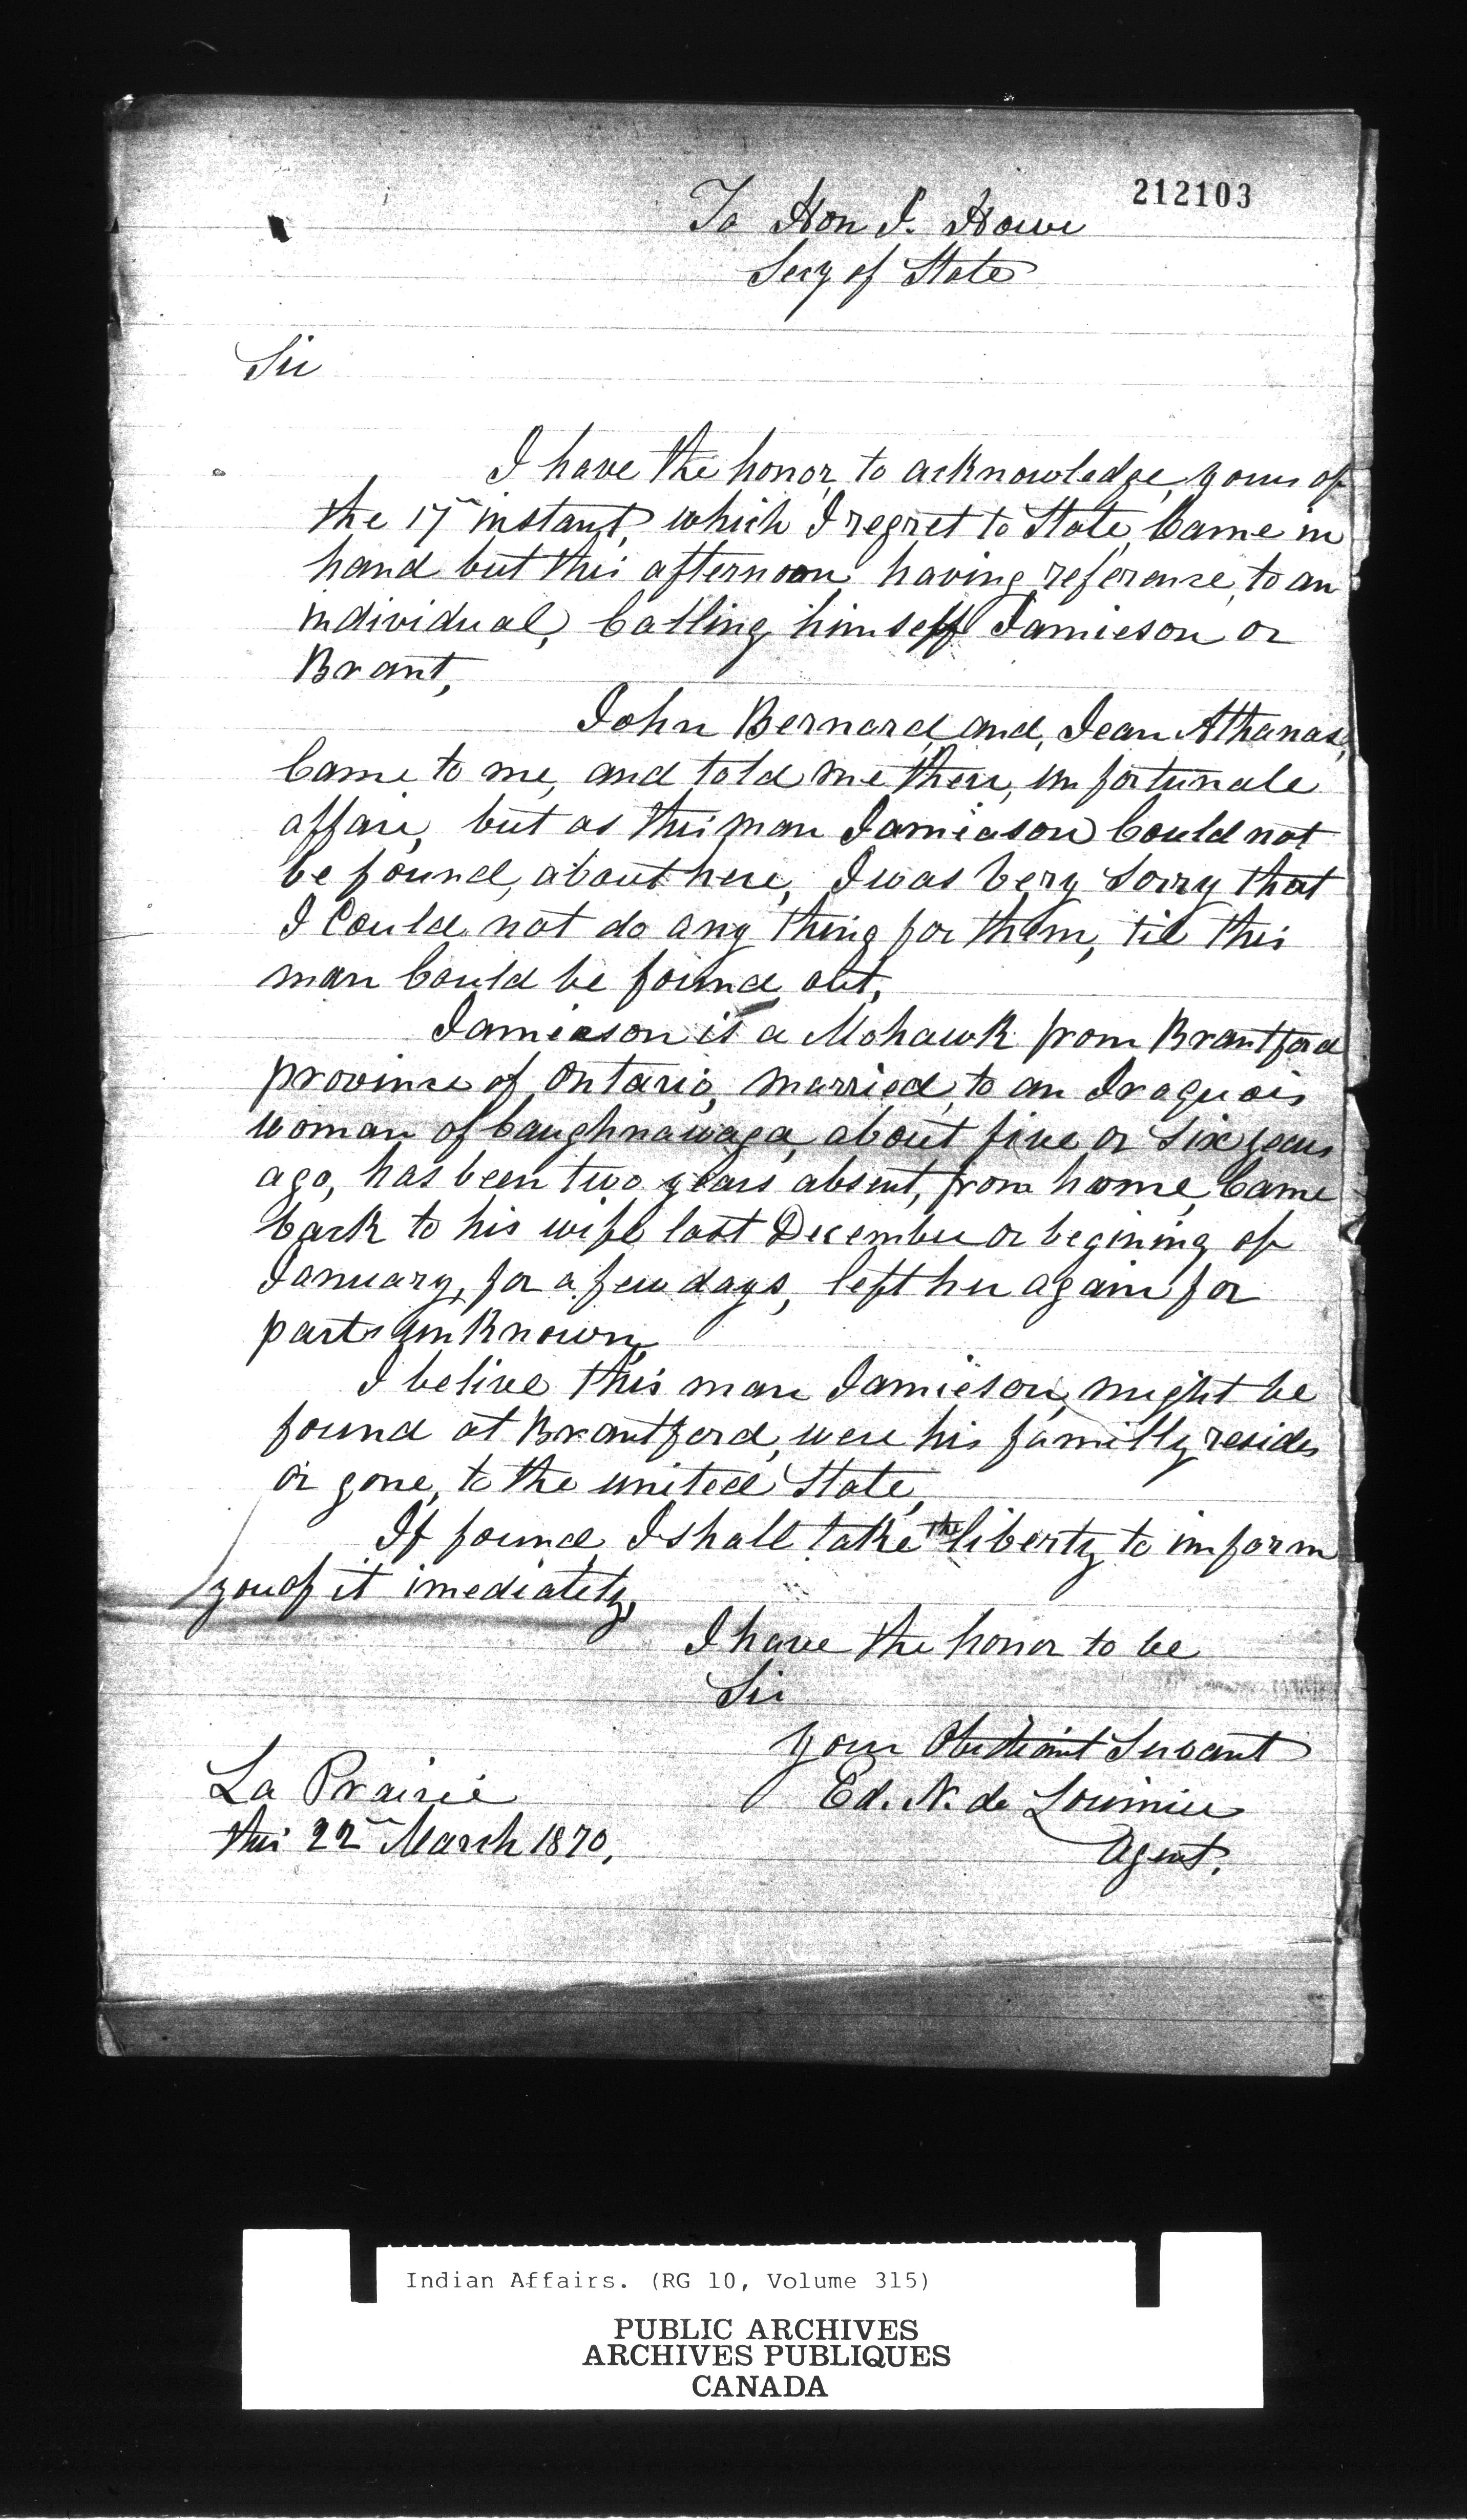 212103
To Hon J. Howe
Secy of State
Sir
I have the honor, to acknowledge, yours of
the 17 instant, which I regret to State, Came in
hand but this afternoon having reference, to an
individual, Calling himself Jamieson or
Brant,
John Bernard, and, Jean Athanase,
Came to me, and told me their, unfortunate
affair, but as this man Jamieson Could not
be found, about here, I was very Sorry that
I Could not do any thing for them, til this
man Could be found out,
Jamieson is a Mohawk from Brantford
province of Ontario, married, to an Iroquois
woman of Caughnawaga, about five or Six years
ago, has been two years absent, from home, Came
back to his wife last December or begining of
January, for a few days, left her again for
parts unknown,
I belive this man Jamieson, might be
found at Brantford, were his familly resides
or gone, to the united State,
If found, I shall take the liberty to inform
you of it imediately,
I have the honor to be
Sir
your Obediant Servant
Ed. N. de Lorimier
Agent.
La Prairie
this 22 March 1870,
Indian Affairs. (RG 10, Volume 315)
PUBLIC ARCHIVES
ARCHIVES PUBLIQUES
CANADA